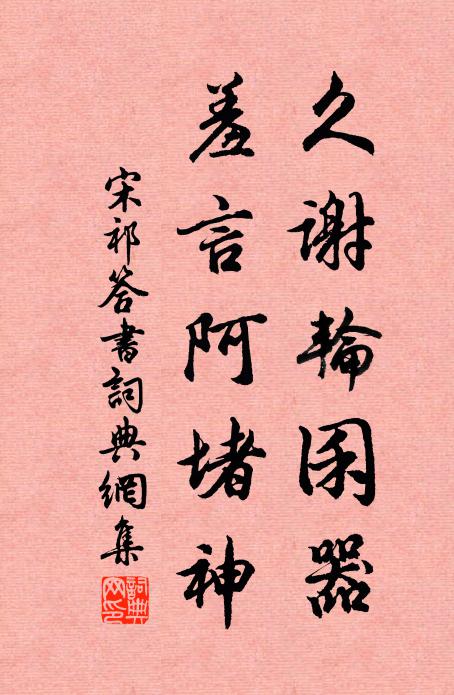 久謝輪囷器
羞言阿堵神
宋祁答書詞典網集
詞典網印